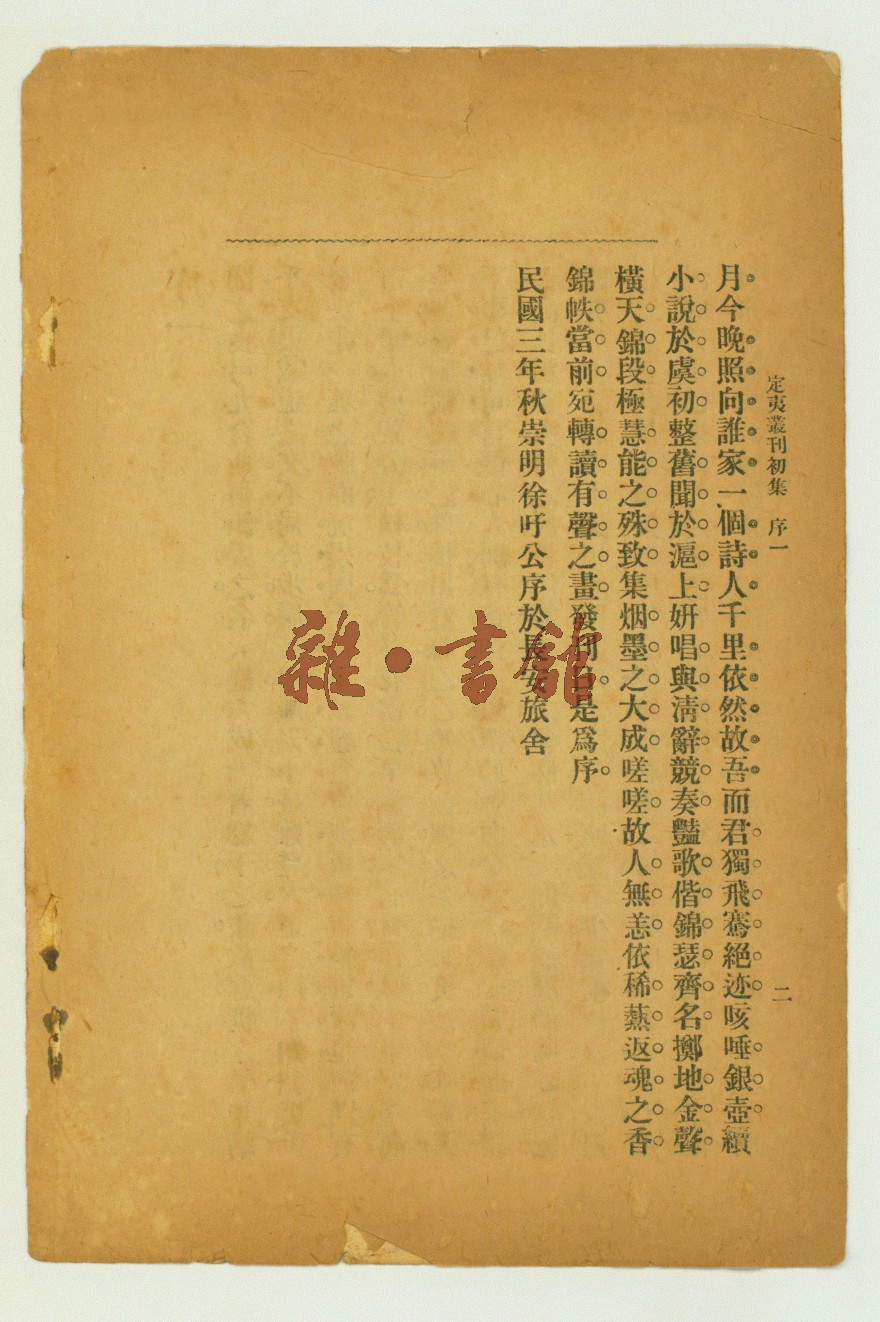 定夷叢刊初集 序一 二
月今晚照向誰家一個詩人千里依然故吾而君獨飛騫絕迹咳唾銀壺續
小說於虞初整舊聞於滬上妍唱與淸辭競奏豔歌偕錦瑟齊名擲地金聲
橫天錦段極慧能之殊致集烟墨之大成嗟嗟故人無恙依稀爇返魂之香
錦帙當前宛轉讀有聲之畫發刊日是爲序
民國三年秋崇明徐吁公序於長安旅舍
雜·書館